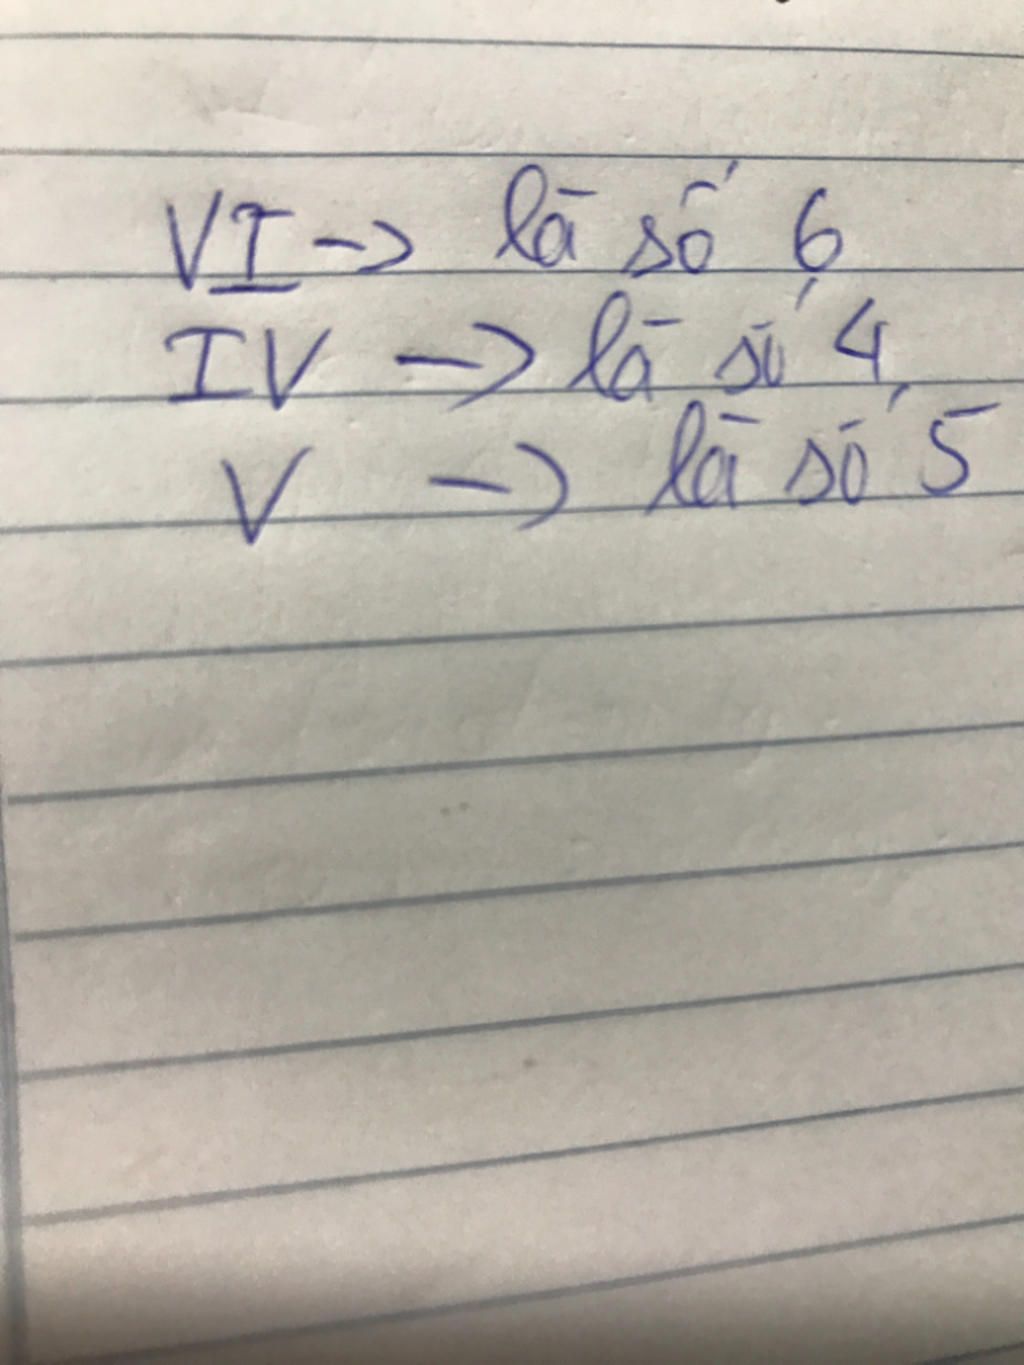 VI -> là số 6
IV -> là số 4
V -> là số 5